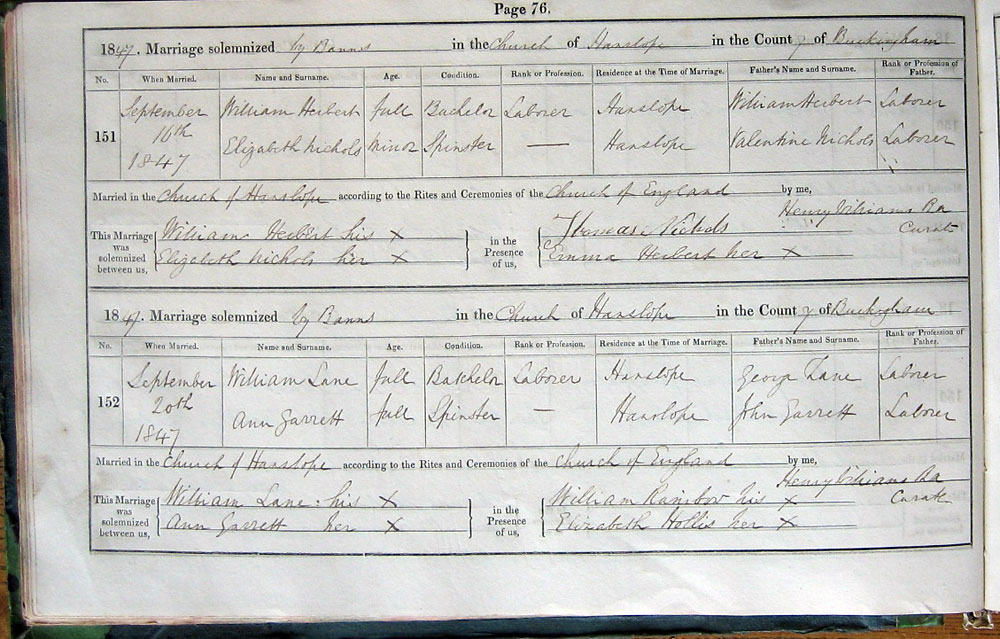 Page 76.
1847. Marriage solemnized by Banns in the Church of Hanslope in the County of Buckingham
No. When Married. Name and Surname. Age. Condition. Rank or Profession. Residence at the Time of Marriage. Father's Name and Surname. Rank or Profession of Father.
151 September 16th 1847 William Herbert full Bachelor Laborer Hanslope William Herbert Laborer
Elizabeth Nichols Minor Spinster — Hanslope Valentine Nichols Laborer
Married in the Church of Hanslope according to the Rites and Ceremonies of the Church of England by me,
Henry Curate
This Marriage was solemnized between us, William Herbert his X in the Presence of us, Thomas Nichols
Elizabeth Nichols her X Emma Herbert her X
1847. Marriage solemnized by Banns in the Church of Hanslope in the County of Buckingham
No. When Married. Name and Surname. Age. Condition. Rank or Profession. Residence at the Time of Marriage. Father's Name and Surname. Rank or Profession of Father.
152 September 20th 1847 William Lane full Batchelor Laborer Hanslope George Lane Laborer
Ann Garrett full Spinster — Hanslope John Garrett Laborer
Married in the Church of Hanslope according to the Rites and Ceremonies of the Church of England by me,
Henry Curate
This Marriage was solemnized between us, William Lane: his X in the Presence of us, William Rainbow his X
Ann Garrett her X Elizabeth Hollis her X